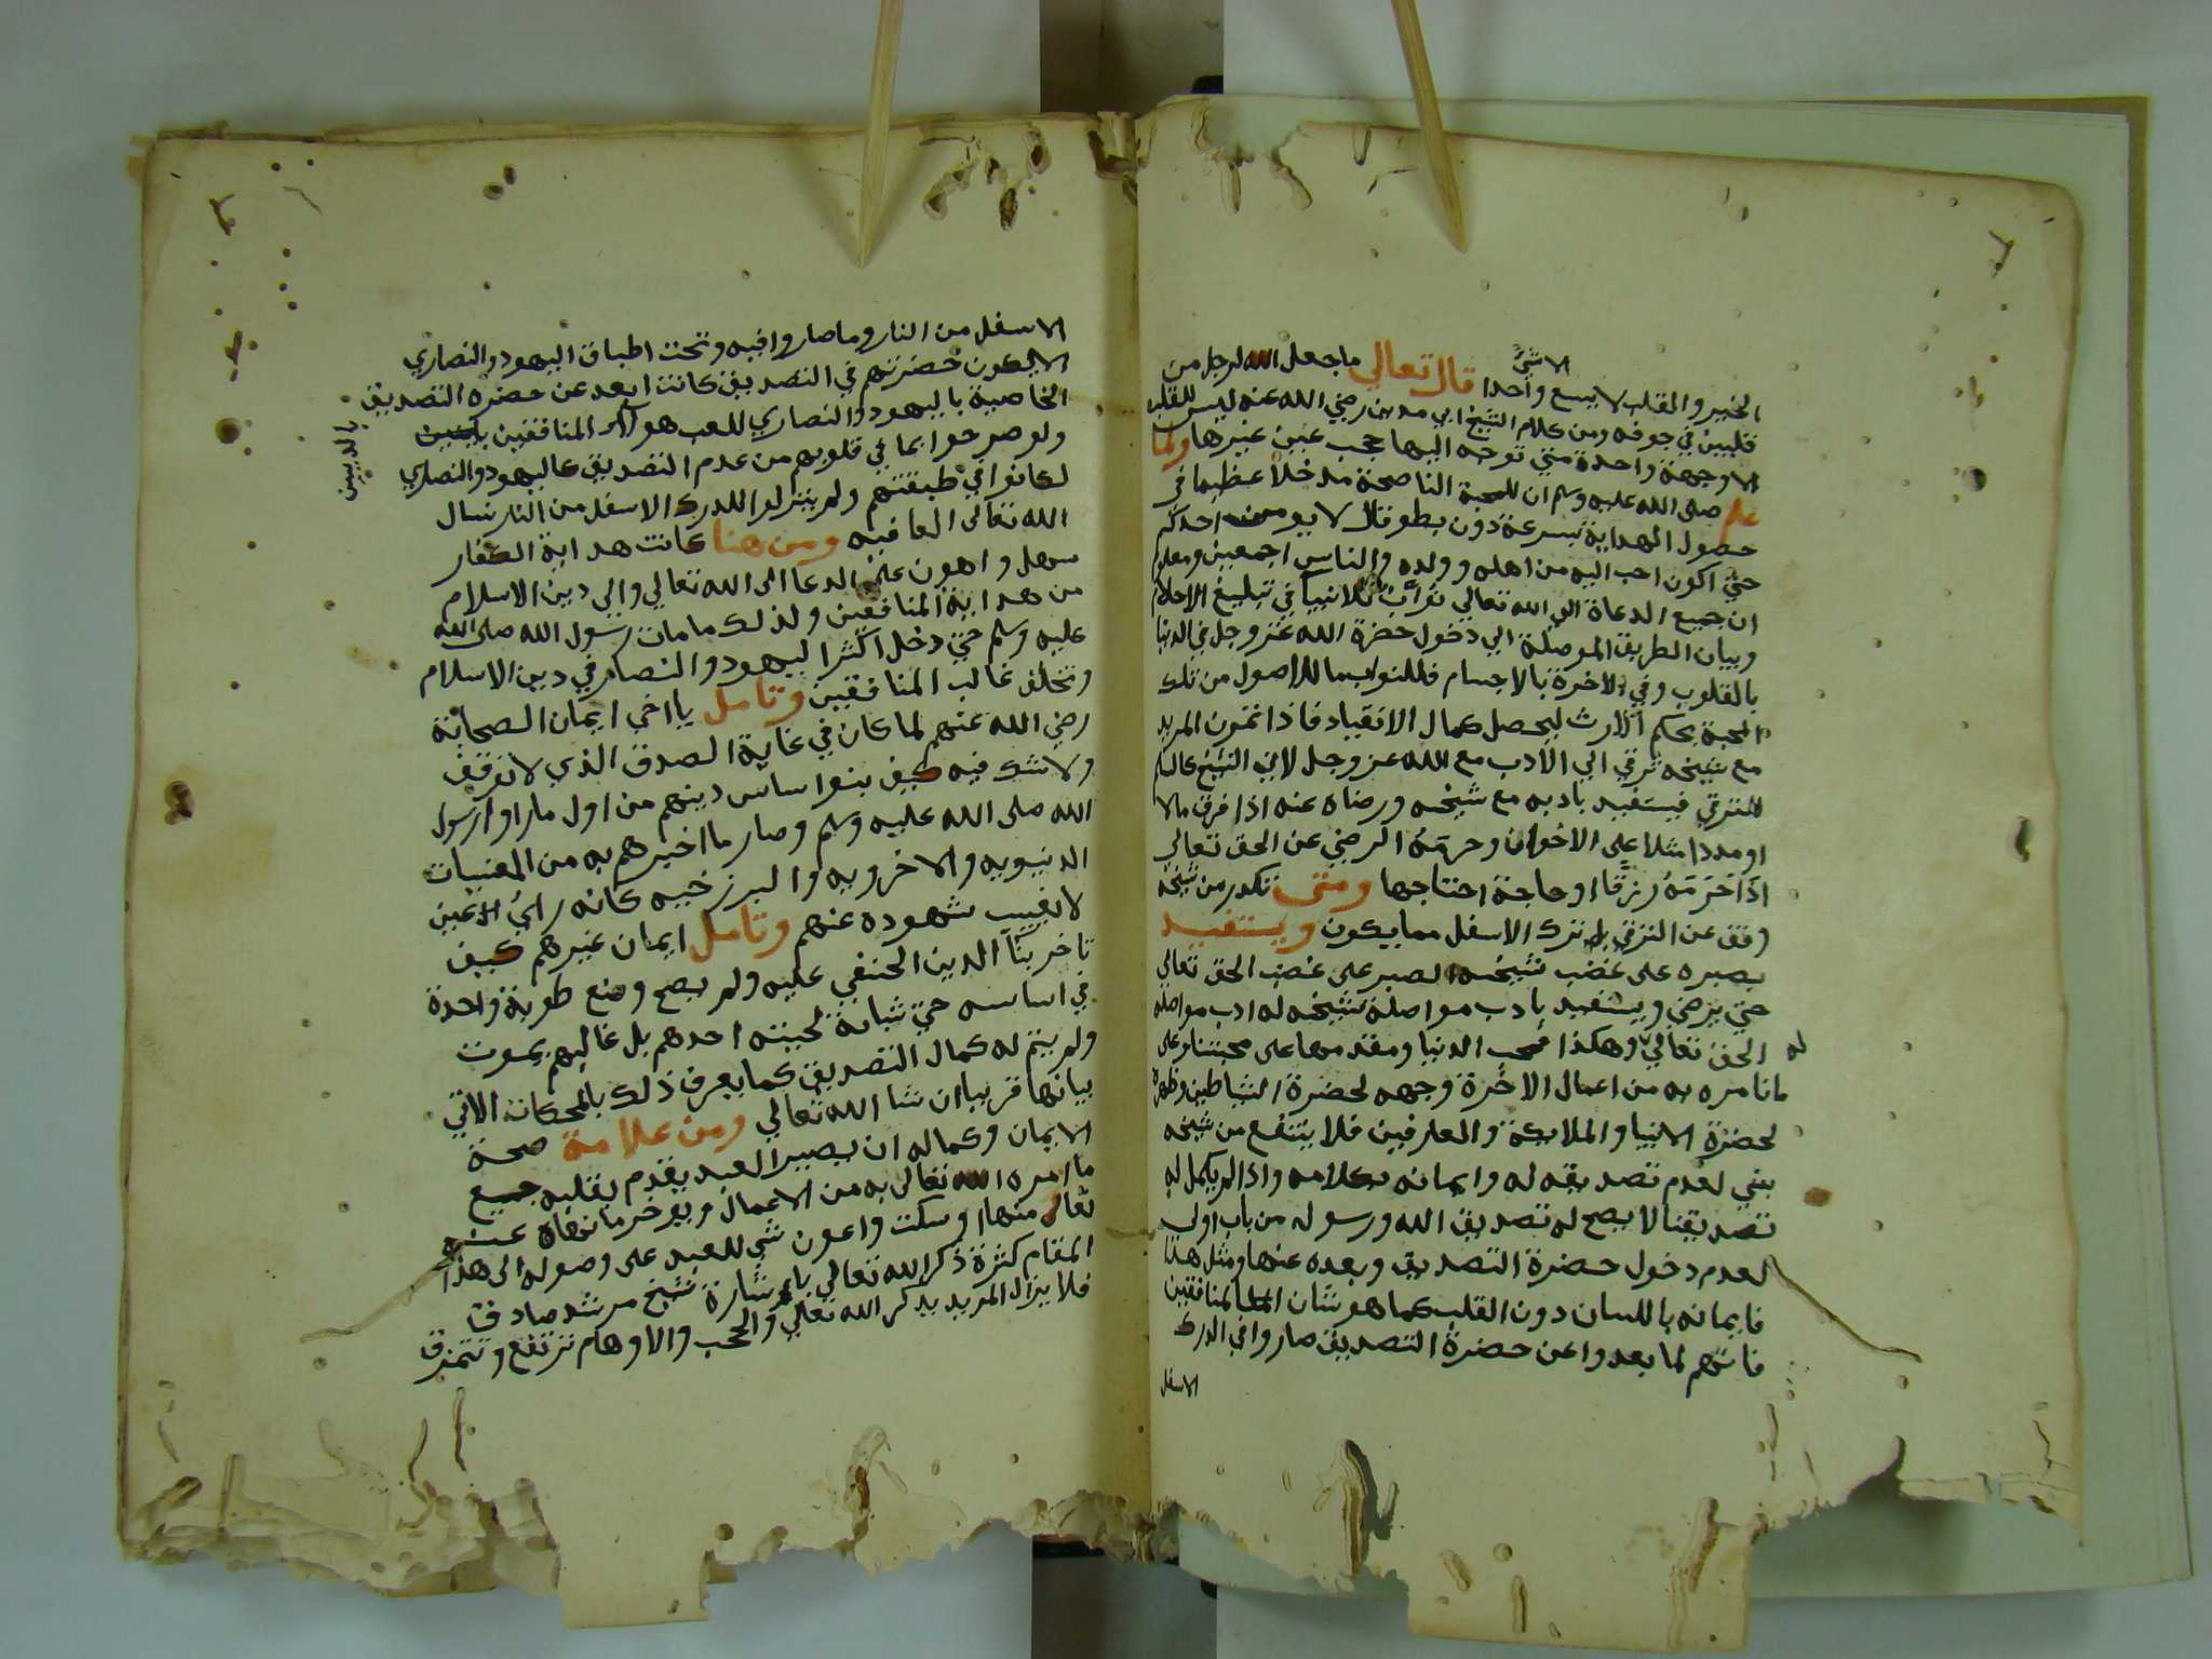 الخير والقلب لا يسع الا شئ واحدا قال تعالي ما جعل الله لرجل من
قلبين في جوفه ومن كلام الشيخ ابي مدين رضي الله عنه ليس للقلب
الا وجهة واحدة متي توجه اليها حجب عن غيرها ولما
علم صلى الله عليه وسلم ان للمحبة الناصحة مدخلا عظيما في
حصول الهداية بسرعة دون بطو قال لا يومن احدكم
حتي اكون احب اليه من اهله وولده والناس اجمعين ومعلوم
ان جميع الدعاة الي الله تعالي نواب للانبيا في تبليغ الاحكام
وبيان الطريق الموصلة الي دخول حضرة الله عز وجل في الدنيا
بالقلوب وفي الاخرة بالاجسام فللنواب ما للاصول من تلك
المحبة بحكم الارث ليحصل كمال الانقياد فاذا تمرن المريد
مع شيخه ترقي الي الادب مع الله عز وجل لان الشيخ كالسلم
للترقي فيستفيد بادبه مع شيخه ورضاه عنه اذا فرق مالا
او مددا مثلا علي الاخوان وحرمه الرضي عن الحق تعالي
اذا حرمه رزقا او حاجة احتاجها ومتى تكدر من شيخه
وقف عن الترقي بل ترك الاسفل مما يكون ويستفيد
بصبره على غضب شيخه الصبر على غضب الحق تعالي
حتي يرضي ويستفيد بادب مواصلة شيخه له ادب مواصلة
الحق تعالي له وهكذا فمحب الدنيا ومقدمها على محبتنا وعلى
ما نامره به من اعمال الاخرة وجهه لحضرة الشياطين وظهره
لحضرة الانبيا والملائكة والعارفين فلا ينتفع من شيخه
بشي لعدم تصديقه له وايمانه بكلامه واذا لم يكمل له
تصديقنا لا يصح له تصديق الله ورسوله من باب اولى
لعدم دخول حضرة التصديق وبعده عنها ومثل هذا
فايمانه باللسان دون القلب كما هو شان المنافقين
فانهم لما بعدوا عن حضرة التصديق صاروا في الدرك
الاسفل
الاسفل من النار وما صاروا فيه وتحت اطباق اليهود والنصاري
الا لكون حضرتهم في التصديق كانت ابعد عن حضرة التصديق
الخاصة باليهود والنصاري المنافقين
بالدين
ولو صرحوا بما في قلوبهم من عدم التصديق كاليهود والنصاري
لكانوا في طبقتهم ولم ينزلوا للدرك الاسفل من النار نسال
الله تعالى العافيه ومن هنا كانت هداية الكفار
سهل واهون على الدعا الى الله تعالي والي دين الاسلام
من هداية المنافقين ولذلك ما مات رسول الله صلى الله
عليه وسلم حتي دخل اكثر اليهود والنصار في دين الاسلام
وتخلف غالب المنافقين وتامل يا اخي ايمان الصحابة
رضي الله عنهم لما كان في غاية الصدق الذي لا توقف
ولا شك فيه كيف بنوا ساس دينهم من اول ما راوا رسول
الله صلى الله عليه وسلم وصار ما اخبرهم به من المغيبات
الدنيويه والاخرويه والبرزخيه كانه راي العين
لا يغيب شهوده عنهم وتامل ايمان غيرهم كيف
تاخر بنا الدين الحنفي عليه ولم يصح وضع طوبة واحدة
في اساسه حتي شابت لحيته احدهم بل غالبهم يموت
ولم يتم له كمال التصديق كما يعرف ذلك بالمحكات الاتي
بيانها قريبا ان شا الله تعالي ومن علامة صحة
الايمان وكماله ان يصير العبد يقدم بقلبه جميع
ما امره الله تعالى به من الاعمال ويوخر ما نهاه عنه
تعالى منها او سكت واعون شي للعبد على وصوله الى هذا
المقام كثرة ذكر الله تعالي باشارة شيخ مرشد صادق
فلا يزال المريد يذكر الله تعالي والحجب والاوهام ترتفع وتتمزق